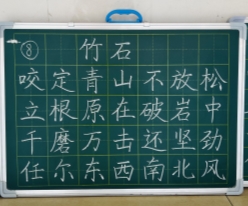 ⑧ 竹石
咬定青山不放松
立根原在破岩中
千磨万击还坚劲
任尔东西南北风